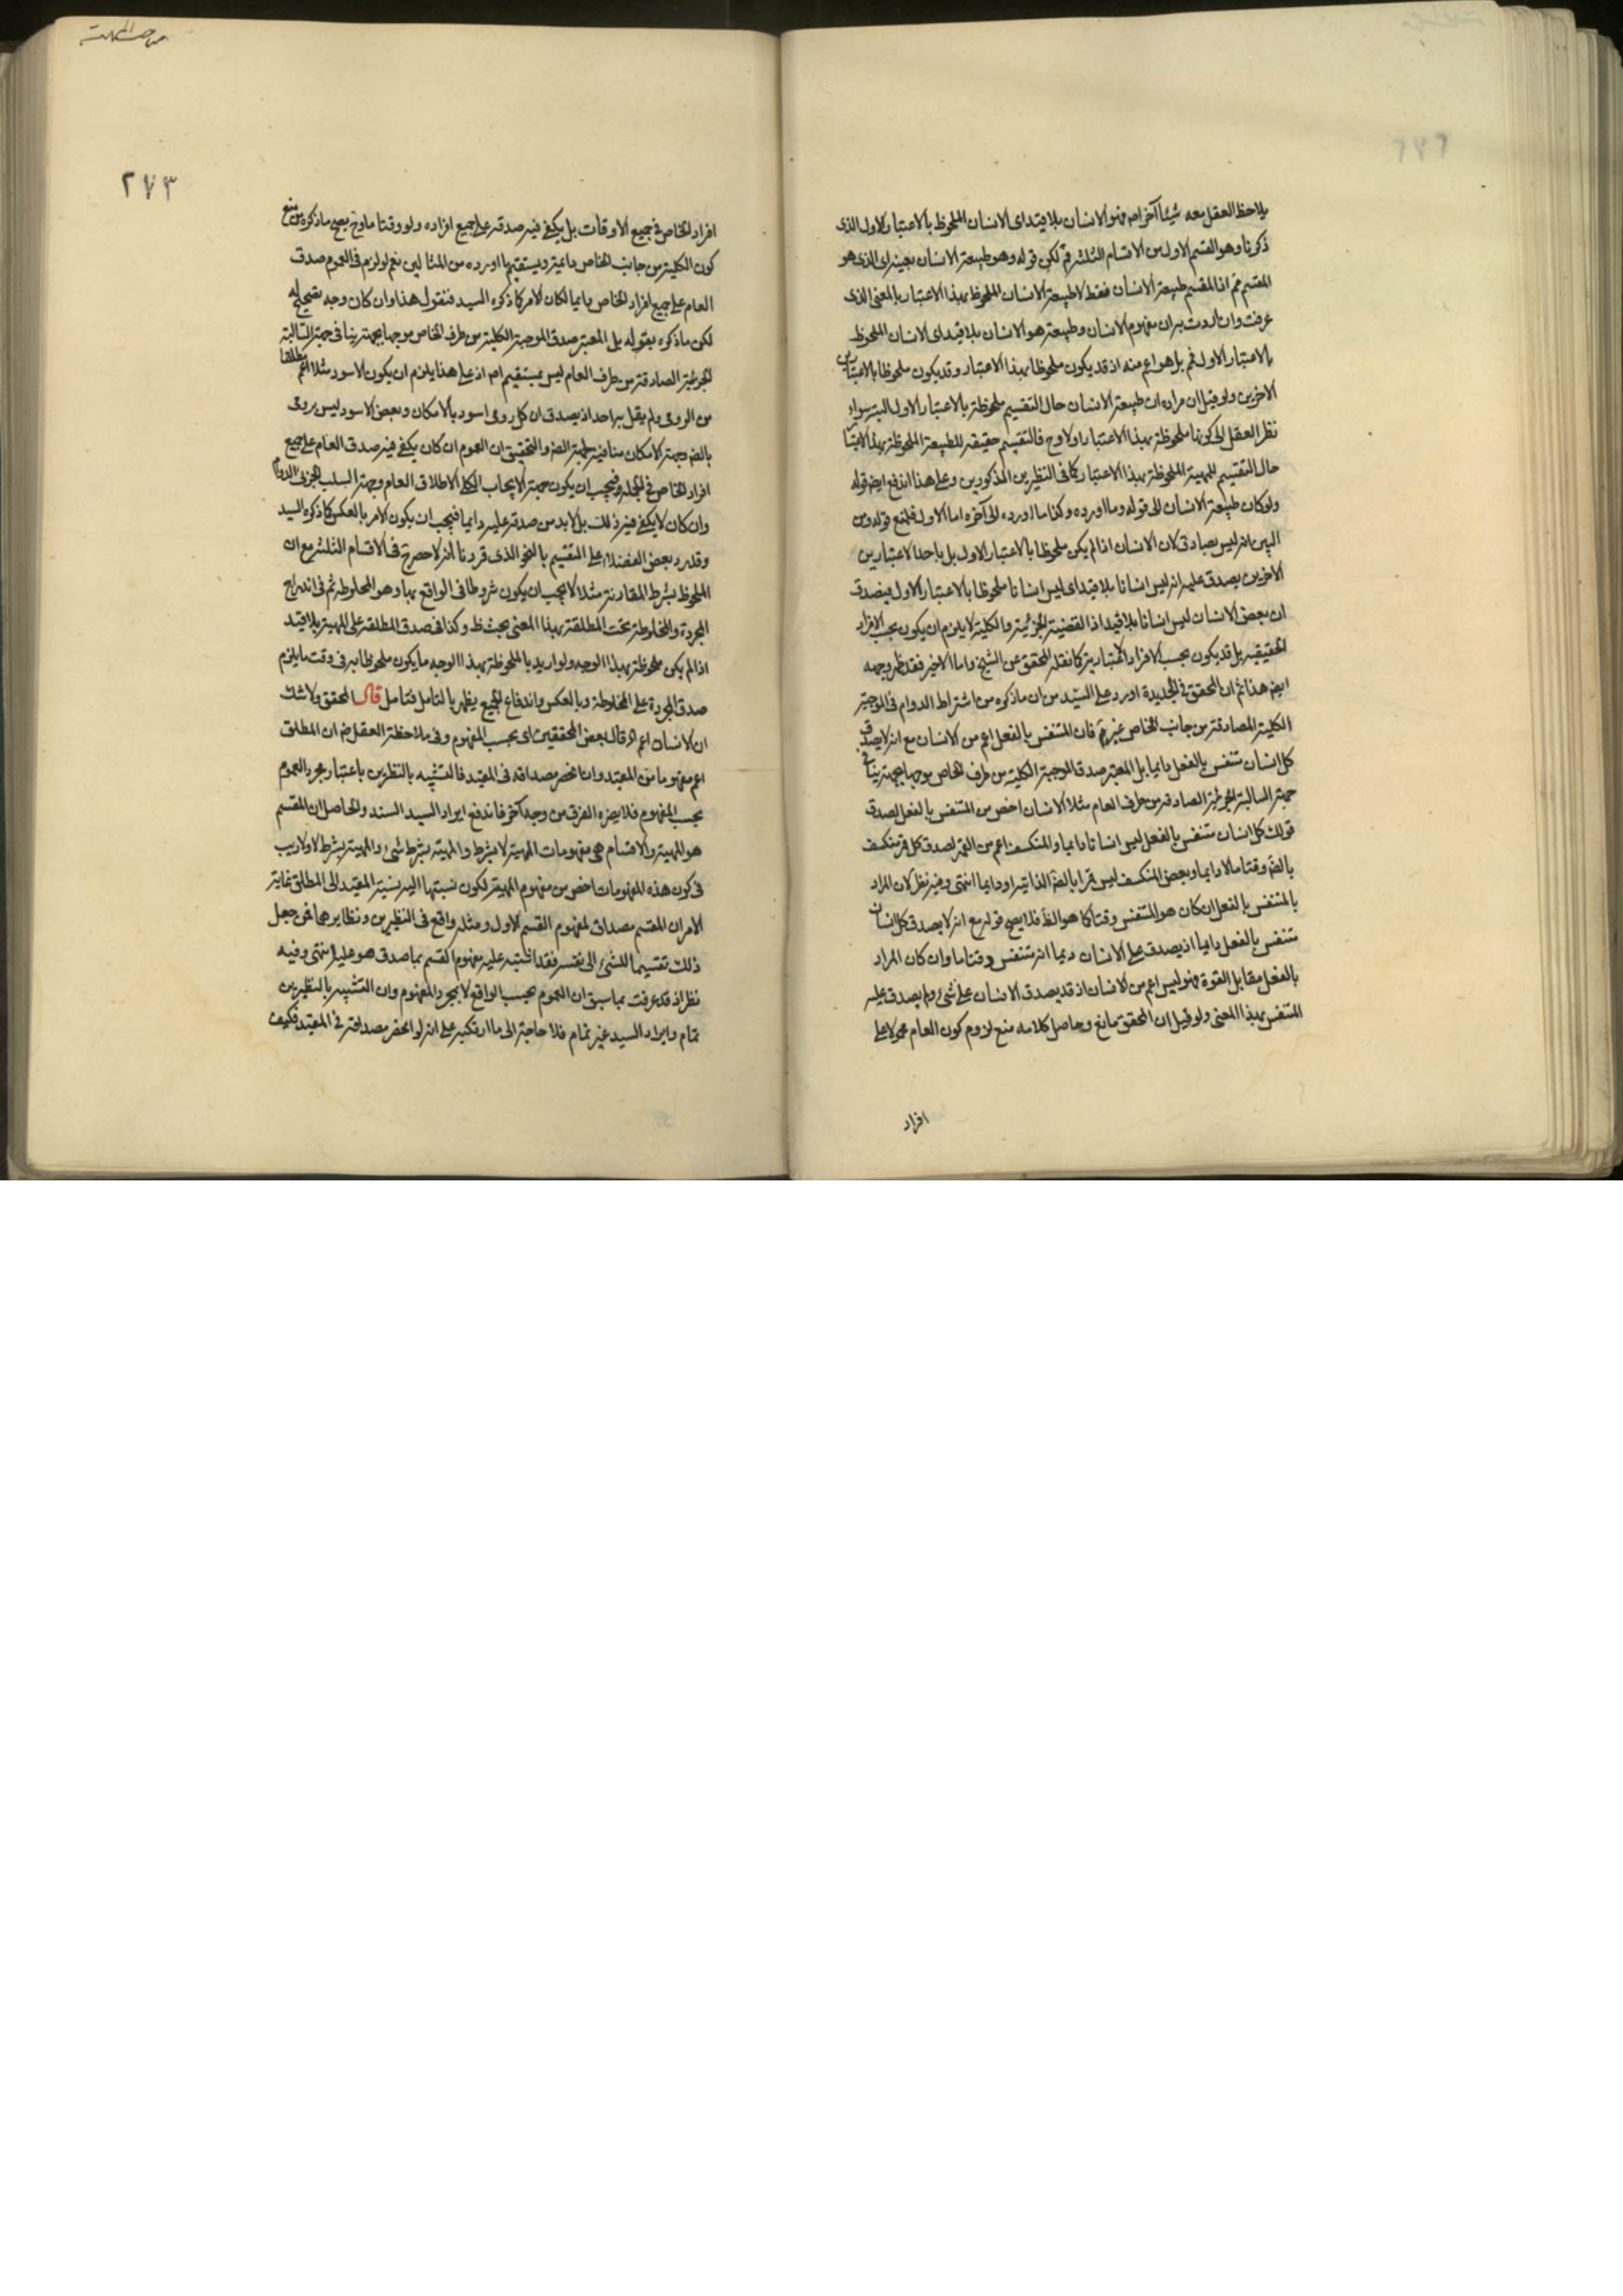 يلاحظ العقل معه شيئا آخر اصلا فهو الانسان بلا قيد اى الانسان الملحوظ بالاعتبار الاول الذى
ذكرنا وهو القسم الاول من الاقسام الثلثة لكن قوله وهو طبيعة الانسان بعينه اى الذى هو
المقسم فم اذ المقسم طبيعة الانسان فقط لا طبيعة الانسان الملحوظ بهذا الاعتبار بالمعنى الذى
عرفت وان اردت به ان مفهوم الانسان وطبيعة هو الانسان بلا قيد اى الانسان الملحوظ
بالاعتبار الاول فم بل هو اعم منه اذ قد يكون ملحوظا بهذا الاعتبار وقد يكون ملحوظا بالاعتبارين
الاخرين ولو قيل ان مراده ان طبيعة الانسان حال التقسيم ملحوظة بالاعتبار الاول البتة سواء
نظر العقل الى كونها ملحوظة بهذا الاعتبار اولا وح فالتقسيم حقيقة للطبيعة الملحوظة بهذا الاعتبار
حال التقسيم للمهية الملحوظة بهذا الاعتبار كما فى النظيرين المذكورين وعلى هذا اندفع ايض قوله
ولو كان طبيعة الانسان الى قوله وما اورده وكذا ما اورده الى آخره اما الاول فلمنع قوله ومن
البين انه ليس بصادق لان الانسان اذا لم يكن ملحوظا بالاعتبار الاول بل باحد الاعتبارين
الاخرين يصدق عليه انه ليس انسانا بلا قيد اى ليس انسانا ملحوظا بالاعتبار الاول فيصدق
ان بعض الانسان ليس انسانا بلا قيد اذ القضية الجزئية والكلية لا يلزم ان يكون بحسب الافراد
الحقيقيه بل قد يكون بحسب الافراد الاعتبارية كما نقله المحقق عن الشيخ واما الاخير فقد ظهر وجهه
ايض هذا ثم ان المحقق فى الجديدة اورد على السيد من ان ما ذكره من اشتراط الدوام فى الموجبة
الكلية الصادقة من جانب الخاص غير لازم فان المتنفس بالفعل اعم من الانسان مع انه لا يصدق
كل انسان متنفس بالفعل دايما بل المعتبر صدق الموجبة الكلية من طرف الخاص موجها بجهة ينافى
جهة السالبة الجزئية الصادقة من طرف العام مثلا الانسان اخص من المتنفس بالفعل لصدق
قولك كل انسان متنفس بالفعل ليس انسانا دايما والمنكسف اعم من القمر لصدق كل قمر منكسف
بالضرة وقتا ما لا دايما وبعض المنكسف ليس قمرا بالضرة الذاتية او دايما انتهى وفيه نظر لان المراد
بالمتنفس بالفعل ان كان هو المتنفس وقتا كما هو الظ فلا يصح قوله مع انه لا يصدق كل انسان
متنفس بالفعل دايما اذ يصدق على الانسان دايما انه متنفس وقتا ما وان كان المراد
بالفعل مقابل القوة فهو ليس اعم من الانسان اذ قد يصدق الانسان على شئ ولم يصدق عليه
المتنفس بهذا المعنى ولو قيل ان المحقق مانع وحاصل كلامه منع لزوم كون العام محمولا على
افراد
٢٧٣
افراد الخاص فى جميع الاوقات بل يكفى فيه صدقه على جميع افراده ولو وقتا ما وح يصح ما ذكره من منع
كون الكلية من جانب الخاص دايمية ويستقيم ما اورده من المثالين نعم لو لزم فى العموم صدق
العام على جميع افراد الخاص دايما لكان الامر كما ذكره السيد فنقول هذا وان كان وجه تصحيح له
لكن ما ذكره بقوله بل المعتبر صدق الموجبة الكلية من طرف الخاص موجها بجهة ينافى جهة السالبة
الجزئية الصادقة من طرف العام ليس بمستقيم اصلا اذ على هذا يلزم ان يكون الاسود مثلا اعم مطلقا
من الرومى ولم يقل به احد اذ يصدق ان كل رومى اسود بالامكان وبعض الاسود ليس برومى
بالضرة وجهة الامكان منافية لجهة الضرة والتحقيق ان العموم ان كان يكفى فيه صدق العام على جميع
افراد الخاص فى الجملة فيجب ان يكون جهة الايجاب الكلى الاطلاق العام وجهة السلب الجزئى الدوام
وان كان لا يكفى فيه ذلك بل لا بد من صدقه عليه دايما فيجب ان يكون الامر بالعكس كما ذكره السيد
وقد رد بعض الفضلاء على التقسيم بالنحو الذى قررنا انه لا حصر ح فى الاقسام الثلثة مع ان
الملحوظ بشرط المقارنة مثلا لا يجب ان يكون مشروطا فى الواقع بها وهو المخلوطة ثم فى اندراج
المجردة والمخلوطة تحت المطلقة بهذا المعنى بحث ظ وكذا فى صدق المطلقة على المهية بلا قيد
اذا لم يكن ملحوظة بهذا الوجه ولو اريد بالملحوظة بهذا الوجه ما يكون ملحوظا به فى وقت ما يلزم
صدق المجردة على المخلوطة وبالعكس واندفاع الجميع يظهر بالتامل فتامل قال المحقق ولا شك
ان الانسان اعم اه قال بعض المحققين اى بحسب المفهوم وفى ملاحظة العقل ضرة ان المطلق
اعم مفهوما من المقيد وان انحصر مصداقه فى المقيد فالتشبيه بالنظيرين باعتبار مجرد العموم
بحسب المفهوم فلا يضره الفرق من وجه آخر فاندفع ايراد السيد السند والحاصل ان المقسم
هو المهية والاقسام هى مفهومات المهية لا بشرط والمهية بشرط شئ والمهية بشرط لا ولا ريب
فى كون هذه المفهومات اخص من مفهوم المهية لكون نسبتها اليه نسبة المقيد الى المطلق غاية
الامر ان المقسم مصداق لمفهوم القسم الاول ومثله واقع فى النظيرين ونظايرهما فمن جعل
ذلك تقسيما للشئ الى نفسه فقد اشتبه عليه مفهوم القسم بما صدق هو عليه انتهى وفيه
نظر اذ قد عرفت بما سبق ان العموم بحسب الواقع لا بمجرد المفهوم وان التشبيه بالنظيرين
تمام وايراد السيد غير تمام فلا حاجة الى ما ارتكبه على انه لو انحصر مصداقه فى المقيد فكيف